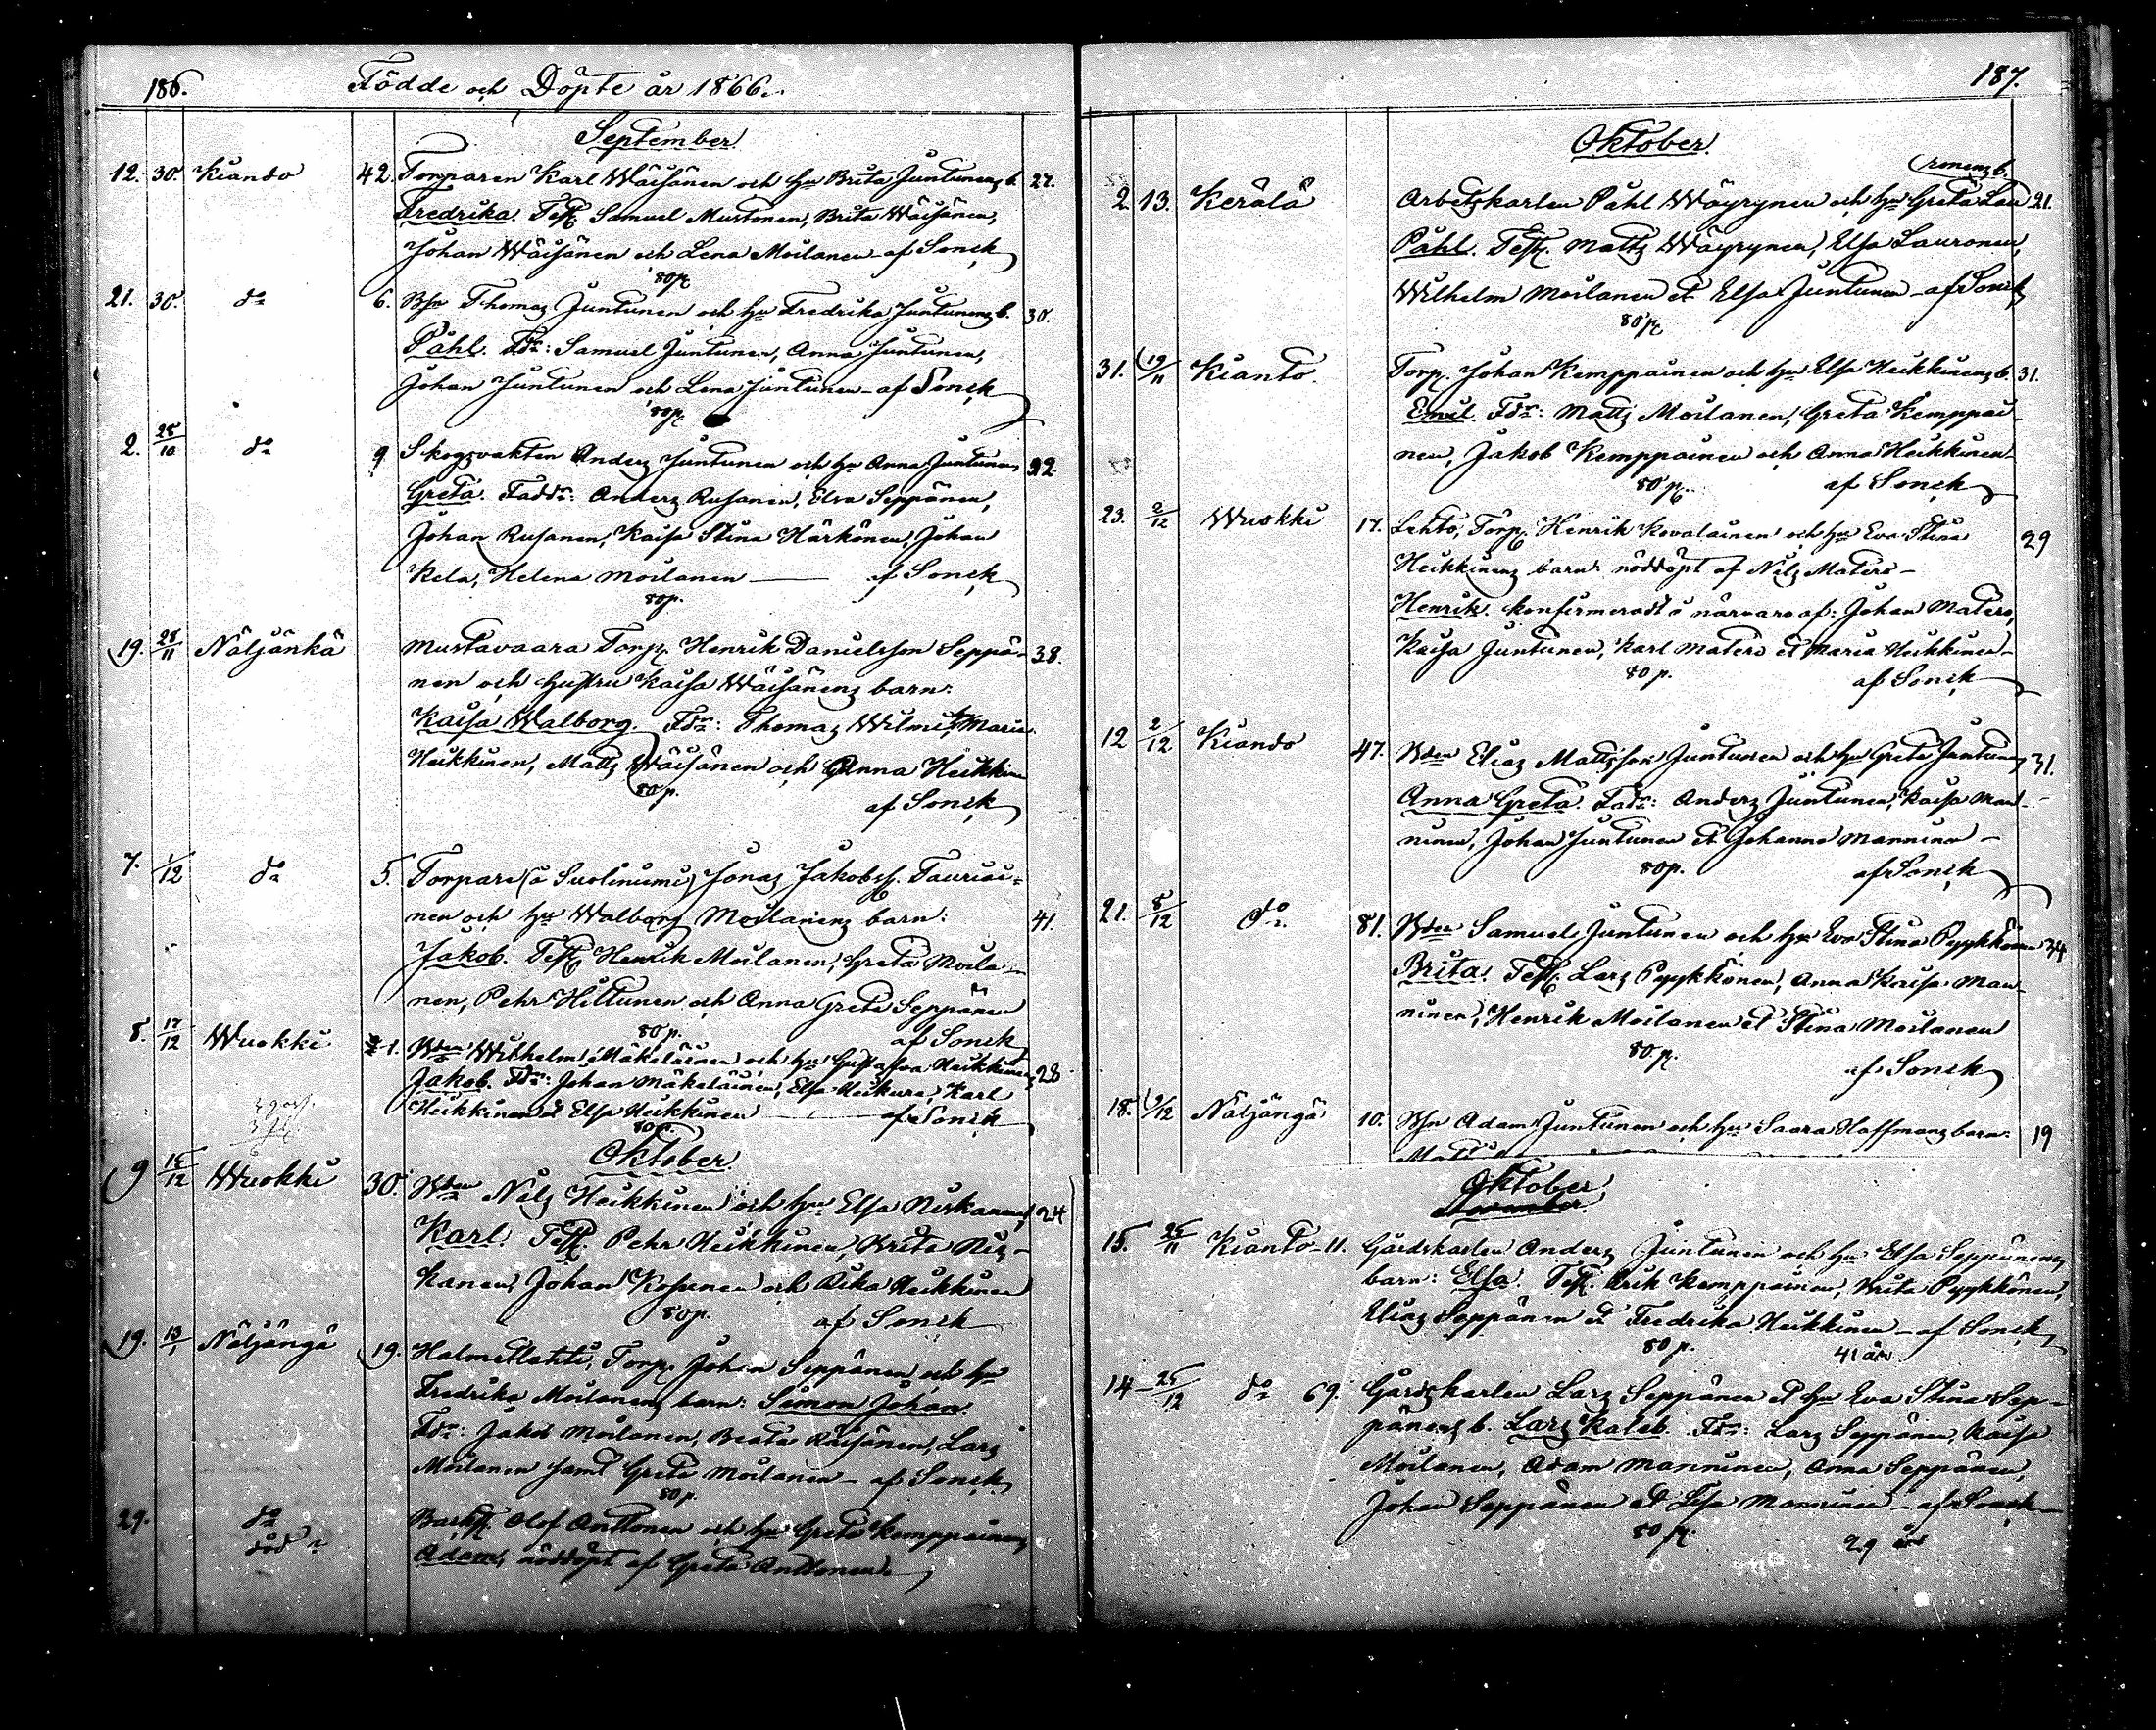 186. Födde och Döpte år 1866.
September
12. 30. Kiando 42. Torparen Karl Wäisänen och hu Brita Juntunens b. 27.
Fredrika. Test. Samuel Mustonen, Brita Wäisänen,
Johan Wäisänen och Lena Moilanen - af Sonck
80 p
21. 30. do 6. Bsn Thomas Juntunen och hu Fredrika Juntunens b. 30.
Påhl. Fdr: Samuel Juntunen, Anna Juntunen,
Johan Juntunen och Lena Juntunen - af Sonck
80 p.
2. 28/10 do 9 Skogsvakten Anders Juntunen och hu Anna Juntunens 22
Greta. Faddr: Anders Rusanen, Elsa Seppänen,
Johan Rusanen, Kaisa Stina Härkönen, Johan
Kela, Helena Moilanen — af Sonck
80 p.
19. 28/11 Näljänkä Mustavaara Torp. Henrik Danielsson Seppä- 38.
nen och hustru Kaisa Wäisänens barn:
Kaisa Walborg. Fdr: Thomas Wilmi, Maria
Heikkinen, Matts Wäisänen och Anna Heikkinen
80 p.
af Sonck
7. 1/12 do 5. Torpare (å Suolinimi) Jonas Jakobss. Tauriai-
nen och hu Walborg Moilanens barn: 41.
Jakob. Test. Henrik Moilanen, Greta Moila-
nen, Pehr Hiltunen och Anna Greta Seppänen
80 p. af Sonck
8. 17/12 Wuokki 1. Wden Wilhelm Mäkeläinen och hu Gustafva Heikkinens 28
Jakob. Fdr: Johan Mäkeläinen, Elsa Heikura, Karl
Heikkinen et Elsa Heikkinen — af Sonck
80 p.
Oktober
9 15/12 Wuokki 30. Wden Nils Heikkinen och hu Elsa Niskanens 24
Karl. Test. Pehr Heikkinen, Brita Nis-
kanen, Johan Kesunen och Rika Heikkinen
80 p. af Sonck
19. 13/1 Näljängä 19. Halmetlahti, Torp. Johan Seppänen och hu
Fredrika Moilanens barn: Simon Johan.
Fdr: Jakob Moilanen, Beata Räisänen, Lars
Moilanen samt Greta Moilanen - af Sonck
80 p.
29. do Backst. Olof Anttonen och hu Greta Kemppainens
död Adam, nöddöpt af Greta Anttonen.
187.
Oktober.
ronens b.
2. 13. Kerälä Arbetskarlen Påhl Wäyrynen och hu Greta Lau 21.
Påhl. Test. Matts Wäyrynen, Elsa Lauronen,
Wilhelm Moilanen et Elsa Juntunen - af Sonck
80 p
31. 19/11 Kianto. Torp. Johan Kemppainen och hu Elsa Heikkinens b. 31.
Emil. Fdr: Matts Moilanen, Greta Kemppai-
nen, Jakob Kemppainen och Anna Heikkinen-
80 p. af Sonck
23. 2/12 Wuokki 17. Lehto, Torp. Henrik Kovalainen och hu Eva Stina 29
Heikkinens barn nöddöpt af Nils Matero -
Henrik. konfirmeradt i närvaro af: Johan Matero,
Kaisa Juntunen, Karl Matero et Maria Heikkinen-
80 p. af Sonck
12 2/12 Kiando 47. Wden Elias Mattsson Juntunen och hu Greta Juntunens 31.
Anna Greta. Fadr: Anders Juntunen, Kaisa Man-
ninen, Johan Juntunen et Johanna Manninen -
80 p. af Sonck
21. 8/12 do 81. Wden Samuel Juntunen och hu Eva Stina Pyykkönens 34
Brita. Test. Lars Pyykkönen, Anna Kaisa Man-
ninen, Henrik Moilanen et Stina Moilanen
80 p.
af Sonck
18. 9/12 Näljängä 10. Bsn Adam Juntunen och hu Saara Hoffmans barn: 19
Oktober
November.
15. 25/11 Kianto - 11. Gårdskarlen Anders Juntunen och hu Elsa Seppänens
barn: Elsa. Test. Erik Kemppainen, Brita Pyykkönen,
Elias Seppänen et Fredrika Heikkinen - af Sonck
80 p. 41 år
14 - 25/12 do 69. Gårdskarlen Lars Seppänen et hu Eva Stina Sep-
pänens b. Lars Kaleb. Fdr: Lars Seppänen, Kaisa
Moilanen, Adam Manninen, Anna Seppänen,
Johan Seppänen et Lisa Manninen - af Sonck -
80 p. 29 år